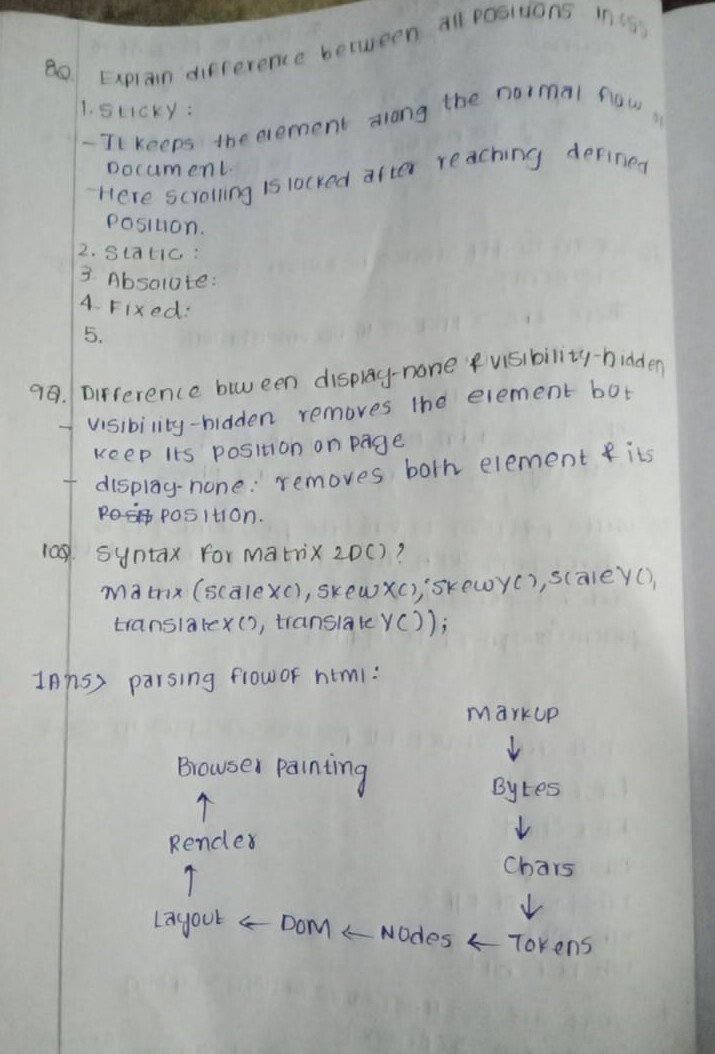 8Q. Explain difference between all positions in css
1. Sticky :
- It keeps the element along the normal flow of
Document.
- Here scrolling is locked after reaching defined
Position.
2. Static :
3. Absolute:
4. Fixed:
5.
9Q. Difference btween display-none & visibility-hidden
- visibility-hidden removes the element but
keep its position on page
- display-none: removes both element & its
position.
10Q. Syntax for matrix 2D()?
Matrix (scaleX(), skewX(), skewY(), scaleY(),
translatex(), translateY());
1Ans> parsing flow of html:
Markup
↓
Browser painting Bytes
↑ ↓
Render Chars
↑ ↓
Layout ← DOM ← Nodes ← Tokens